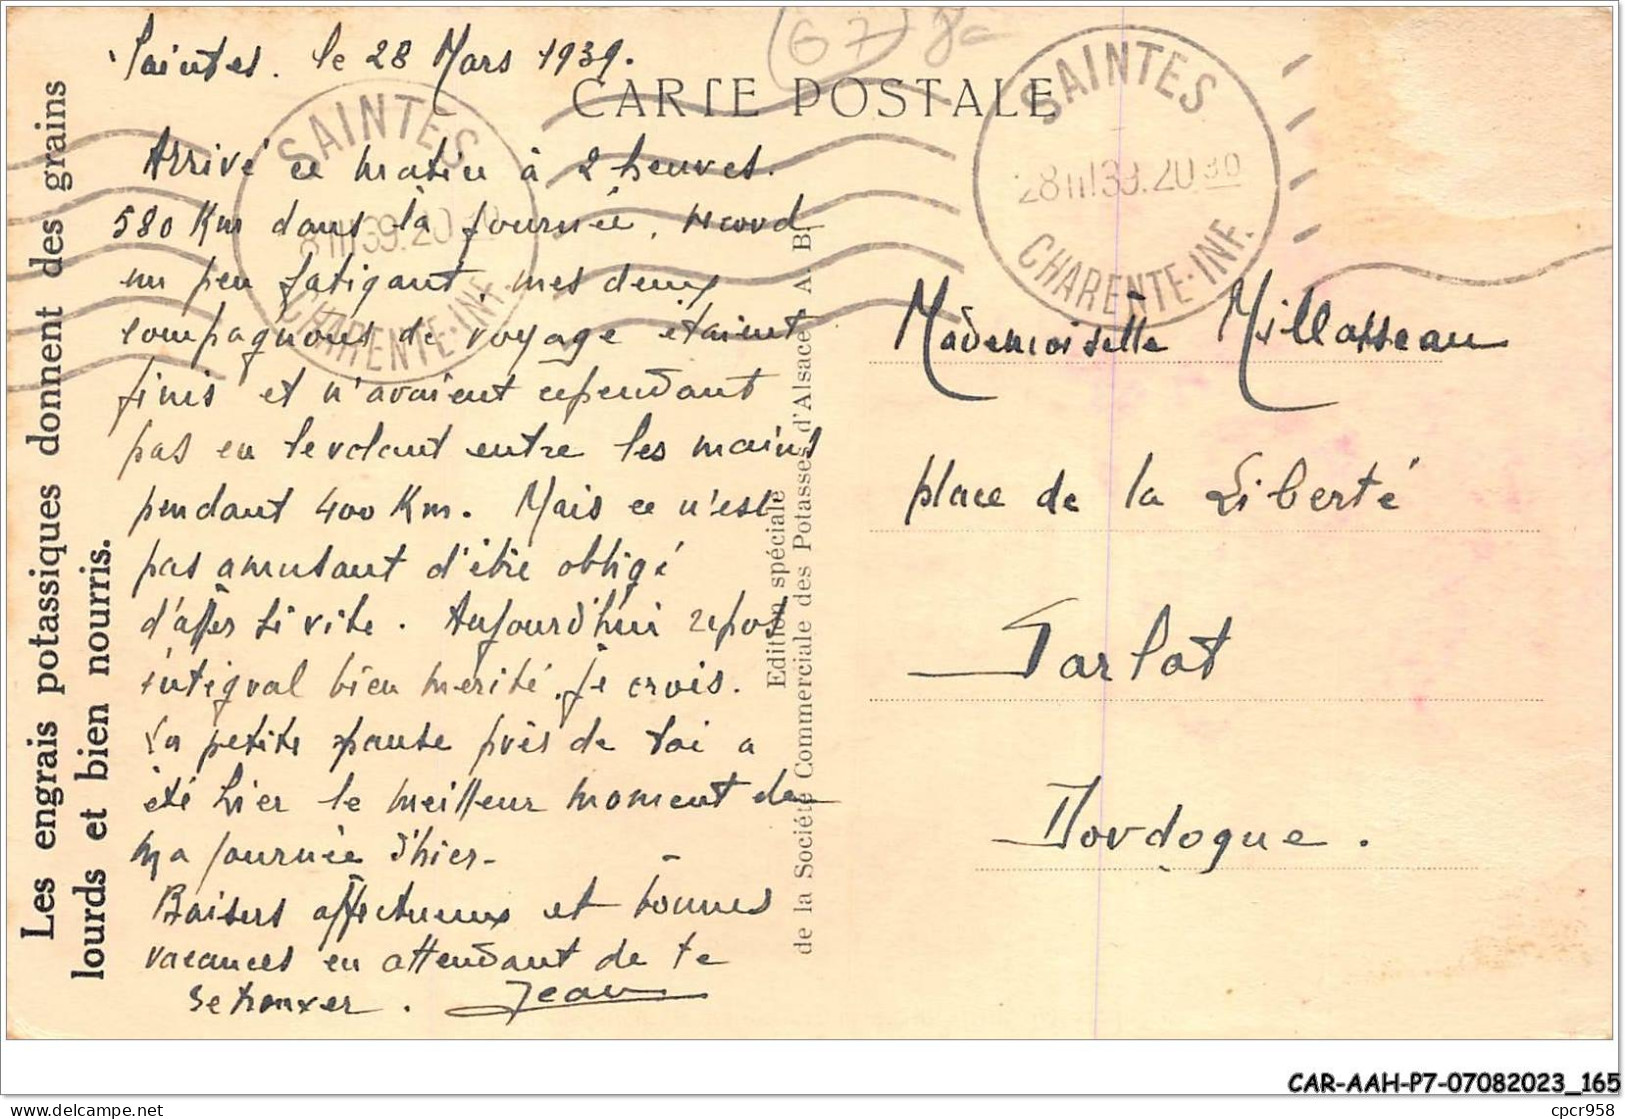 Saintes. le 28 Mars 1939.
CARTE POSTALE
SAINTES
28 III 39.20 30
CHARENTE-INF.
SAINTES
8 III 39.20 30
CHARENTE-INF.
Arrivé ce matin à 2 heures.
580 Km dans la journée.
un peu fatigant. mes deux
compagnons de voyage étaient
finis et n'avaient cependant
pas eu le volant entre les mains
pendant 400 Km. Mais ce n'est
pas amusant d'être obligé
d'aller si vite. Aujourd'hui repos
intégral bien mérité. je crois.
La petite pause près de toi a
été hier le meilleur moment de
ma journée d'hier -
Baisers affectueux et bonnes
vacances en attendant de te
retrouver. Jean
Les engrais potassiques donnent des grains
lourds et bien nourris.
Edition spéciale
de la Société Commerciale des Potasses d'Alsace A. B.
Mademoiselle Millasseau
place de la Liberté
Sarlat
Dordogne.
CAR-AAH-P7-07082023_165
www.delcampe.net
cpcr958